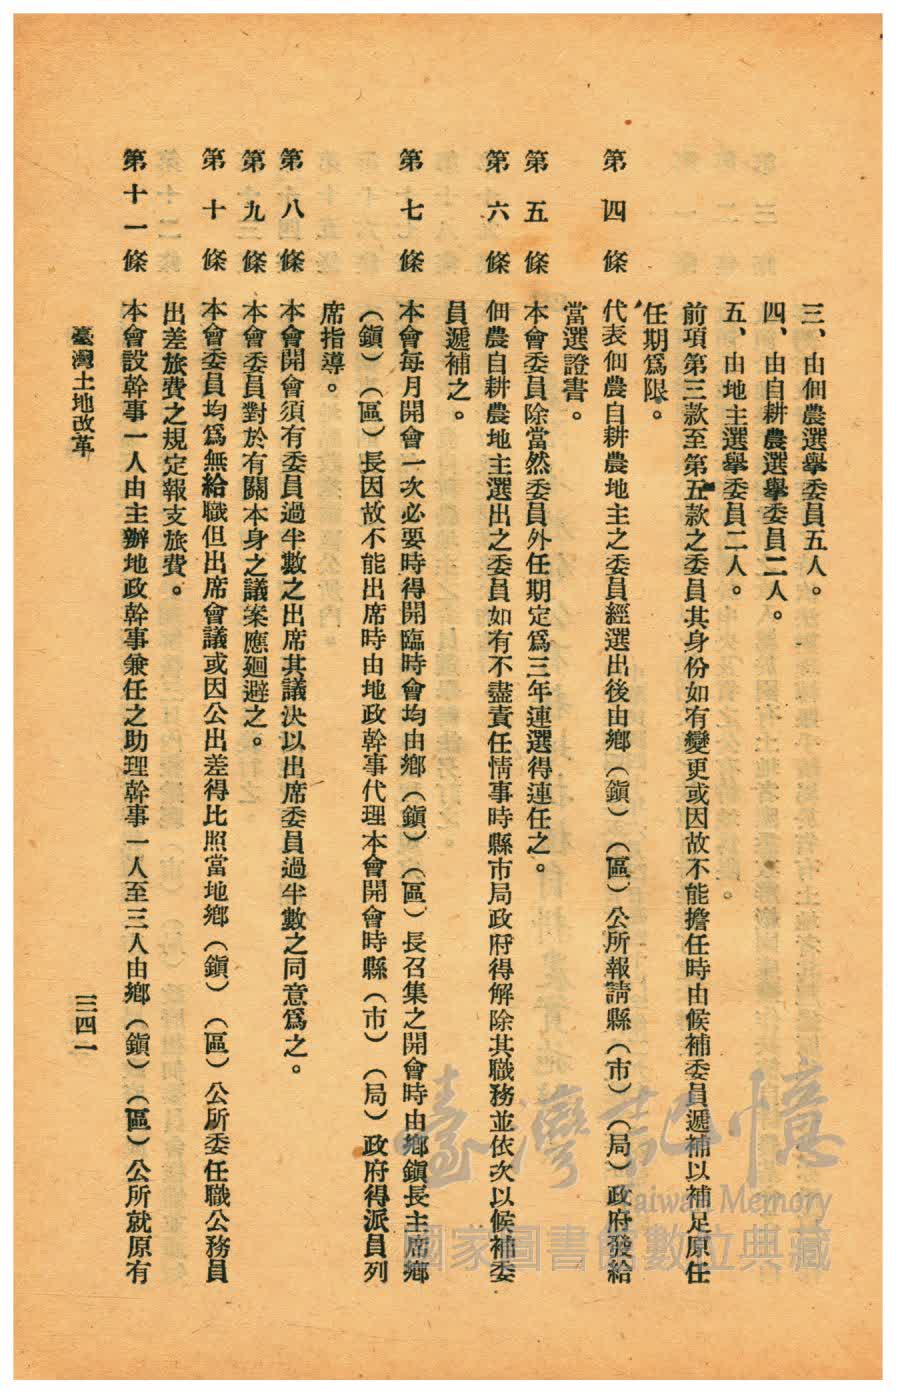 三、由佃農選舉委員五人。
四、由自耕農選舉委員二人。
五、由地主選舉委員二人。
前項第三款至第五款之委員其身份如有變更或因故不能擔任時由候補委員遞補以補足原任
任期爲限。
第四條　代表佃農自耕農地主之委員經選出後由鄉（鎭）（區）公所報請縣（市）（局）政府發給
當選證書。
第五條　本會委員除當然委員外任期定爲三年連選得連任之。
第六條　佃農自耕農地主選出之委員如有不盡責任情事時縣市局政府得解除其職務並依次以候補委
員遞補之。
第七條　本會每月開會一次必要時得開臨時會均由鄉（鎭）（區）長召集之開會時由鄉鎭長主席鄉
（鎭）（區）長因故不能出席時由地政幹事代理本會開會時縣（市）（局）政府得派員列
席指導。
第八條　本會開會須有委員過半數之出席其議決以出席委員過半數之同意爲之。
第九條　本會委員對於有關本身之議案應迴避之。
第十條　本會委員均爲無給職但出席會議或因公出差得比照當地鄉（鎭）（區）公所委任職公務員
出差旅費之規定報支旅費。
第十一條　本會設幹事一人由主辦地政幹事兼任之助理幹事一人至三人由鄉（鎭）（區）公所就原有
臺灣土地改革
三四一
臺灣記憶
Taiwan Memory
國家圖書館數位典藏